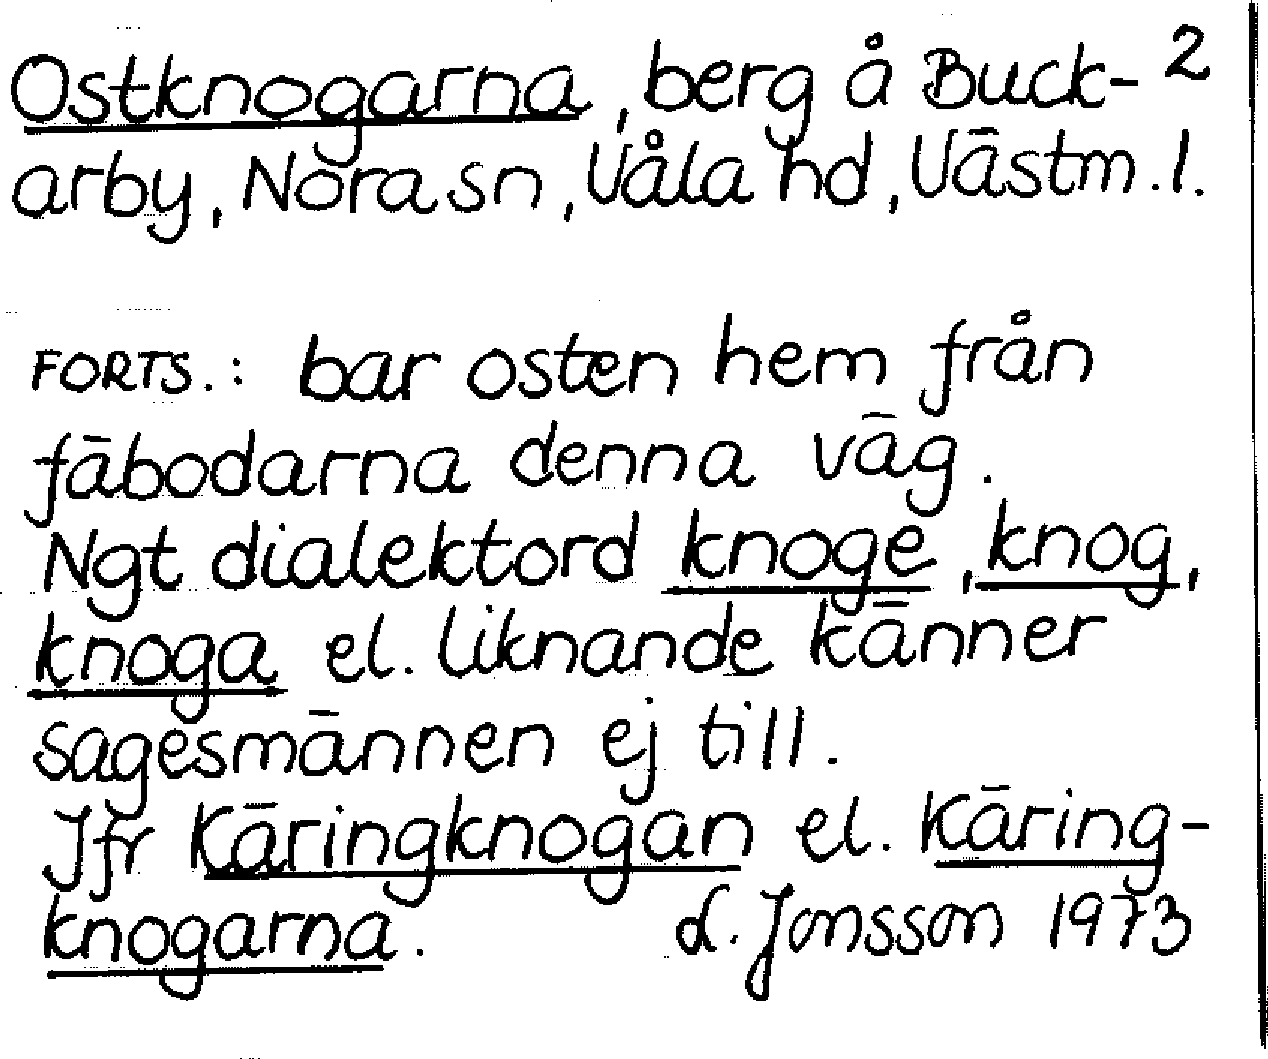 Ostknogarna, berg å Buck- 2
arby, Nora sn, Våla hd, Västm. l.
FORTS.: bar osten hem från
fäbodarna denna väg.
Ngt dialektord knoge, knog,
knoga el. liknande känner
sagesmännen ej till.
Jfr Käringknogan el. Käring-
knogarna. L. Jonsson 1973